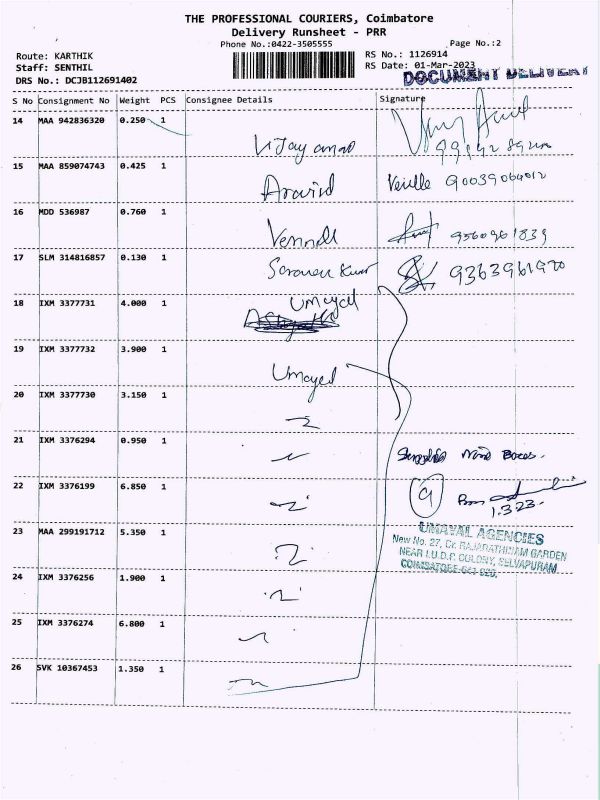 THE PROFESSIONAL COURIERS, Coimbatore
Delivery Runsheet - PRR
Phone No.:0422-3505555 Page No.:2
Route: KARTHIK RS No.: 1126914
Staff: SENTHIL RS Date: 01-Mar-2023
DRS No.: DCJB112691402 DOCUMENT DELIVERY
S No Consignment No Weight PCS Consignee Details Signature
14 MAA 942836320 0.250 1
15 MAA 859074743 0.425 1 Aravind 90039064012
16 MDD 536987 0.760 1 9560961839
17 SLM 314816857 0.130 1 9363961970
18 IXM 3377731 4.000 1 Umayal
19 IXM 3377732 3.900 1 Umayal
20 IXM 3377730 3.150 1
21 IXM 3376294 0.950 1 Boxes.
22 IXM 3376199 6.850 1 9
1.3.23.
23 MAA 299191712 5.350 1 UMAYAL AGENCIES
New No. 27, Cr. RAJARATHINAM GARDEN
NEAR I.U.D.P. COLONY, SELVAPURAM,
24 IXM 3376256 1.900 1 COIMBATORE-641 026.
25 IXM 3376274 6.800 1
26 SVK 10367453 1.350 1